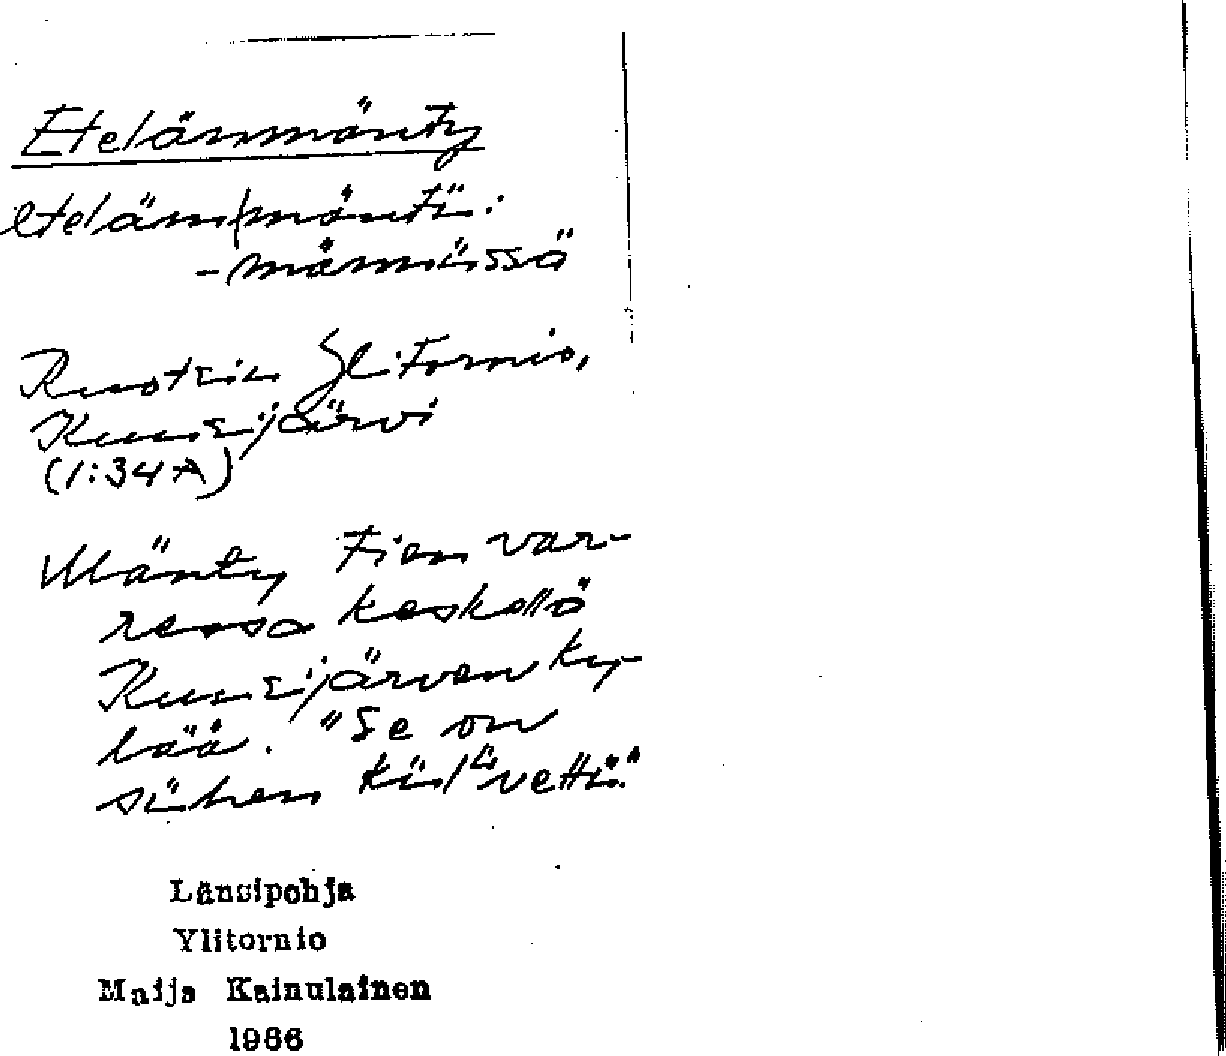 Etelänmänty
etelän|mäntü:
-männüssä
Ruotsin Ylitornio,
Kuusijärvi
(1:34A)
Mänty tien var-
ressa keskellä
Kuusijärven ky-
lää. "Se on
siihen
Länsipohja
Ylitornio
Maija Kainulainen
1966